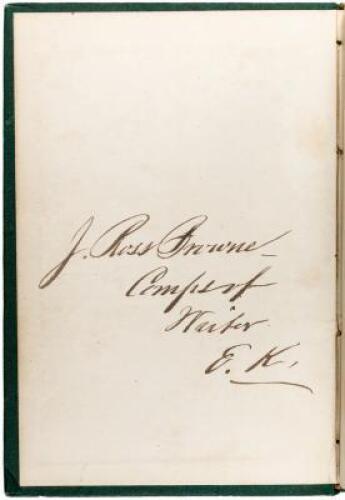 J. Ross Browne
Comps of
Writer
E. K.